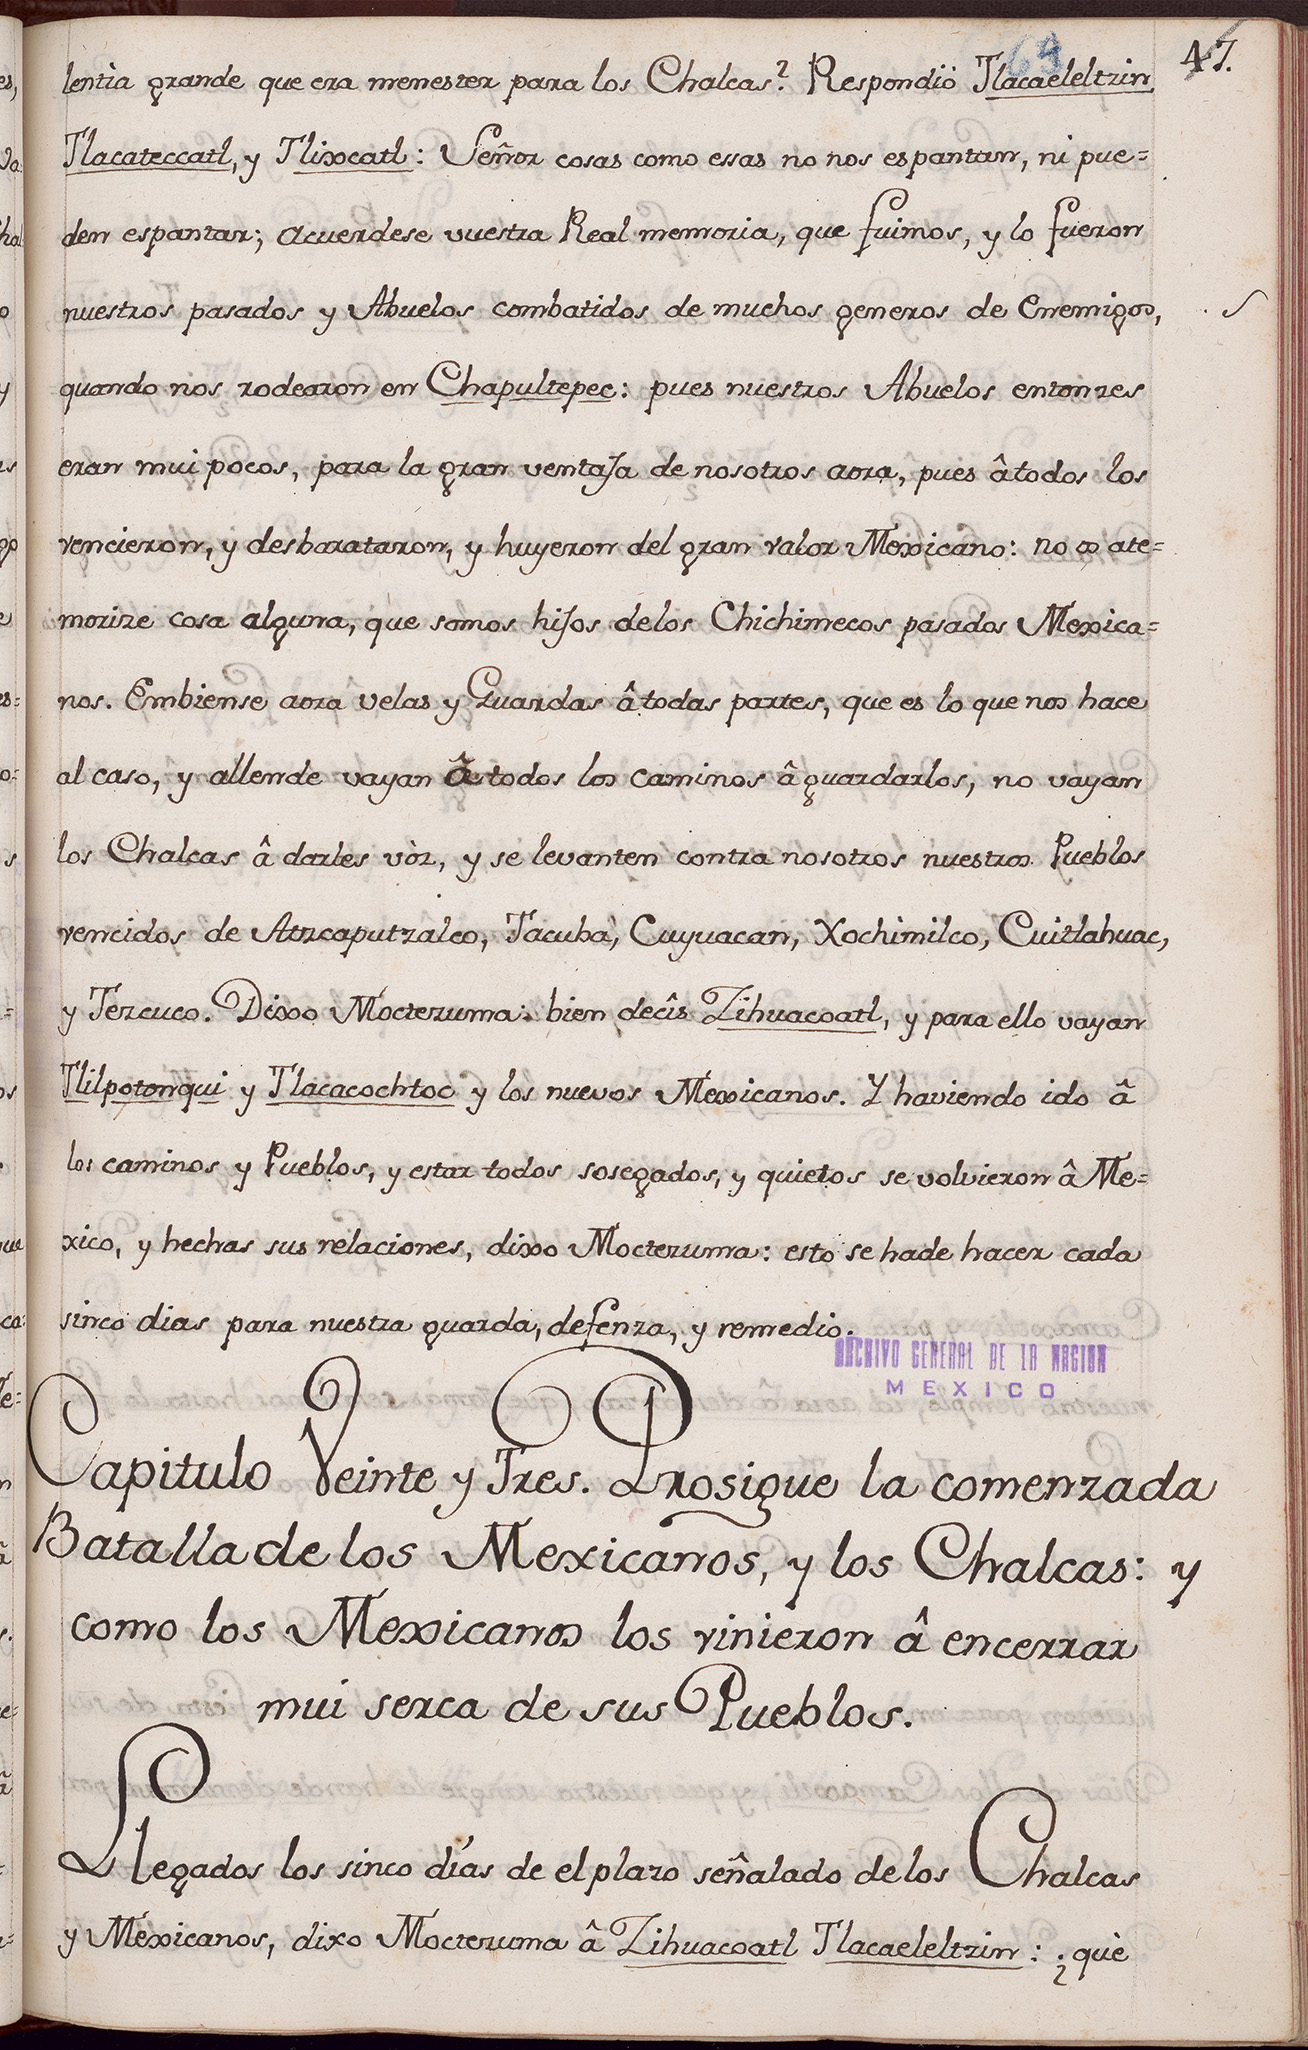 69
47.
lentia grande que era menester para los Chalcas? Respondiö Tlacaeleltzin,
Tlacateccatl, y Tlixocatl: Señor cosas como essas no nos espantan, ni pue=
den espantar; acuerdese vuestra Real memoria, que fuimos, y lo fueron
nuestros pasados y Abuelos combatidos de muchos generos de Enemigos,
quando nos rodearon en Chapultepec: pues nuestros Abuelos entonzes
eran mui pocos, para la gran ventaja de nosotros aora, pues â todos los
vencieron, y desbarataron, y huyeron del gran valor Mexicano: no os ate=
morize cosa alguna, que somos hijos delos Chichimecos pasados Mexica=
nos. Embiense aora velas y Guardas â todas partes, que es lo que nos hace
al caso, y allende vayan â todos los caminos â guardarlos, no vayan
los Chalcas â darles vòz, y se levanten contra nosotros nuestros Pueblos
vencidos de Atzcaputzalco, Tacuba, Cuyuacan, Xochimilco, Cuitlahuac,
y Tezcuco. Dixo Moctezuma: bien decîs Zihuacoatl, y para ello vayan
Tlilpotonqui y Tlacacochtoc y los nuevos Mexicanos. Y haviendo ido â
los caminos y Pueblos, y estar todos sosegados, y quietos se volvieron â Me=
xico, y hechas sus relaciones, dixo Moctezuma: esto se hade hacer cada
sinco dias para nuestra guarda, defenza, y remedio.
ARCHIVO GENERAL DE LA NACION
MEXICO
Capitulo Veinte y Tres. Prosigue la comenzada
Batalla de los Mexicanos, y los Chalcas: y
como los Mexicanos los vinieron â encerrar
mui serca de sus Pueblos.
Llegados los sinco días de el plazo señalado de los Chalcas
y Mexicanos, dixo Moctezuma â Zihuacoatl Tlacaeleltzin: ¿què